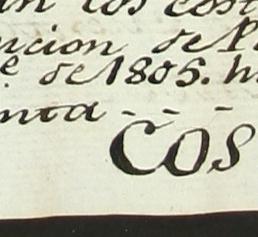 los cost
ncion de P
e de 1805. h
nta - - -
COS